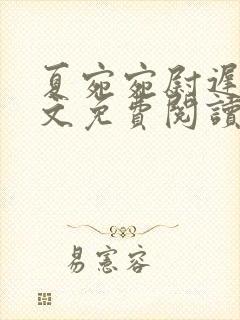 夏宛宛尉遲
文免費閱讀
易憲容